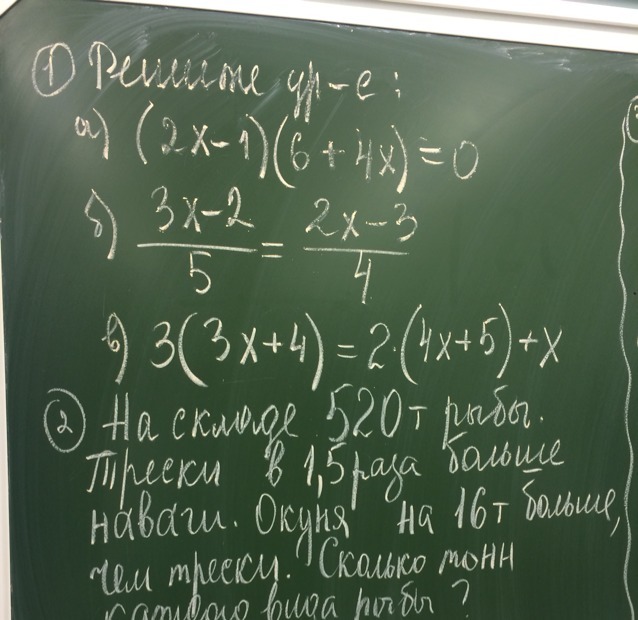 ① Решите ур-е:
а) (2x-1)(6+4x)=0
б) \frac{3x-2}{5} = \frac{2x-3}{4}
в) 3(3x+4)=2·(4x+5)+x
② На складе 520т рыбы.
Трески в 1,5 раза больше
наваги. Окуня на 16т больше,
чем трески. Сколько тонн
каждого вида рыбы?